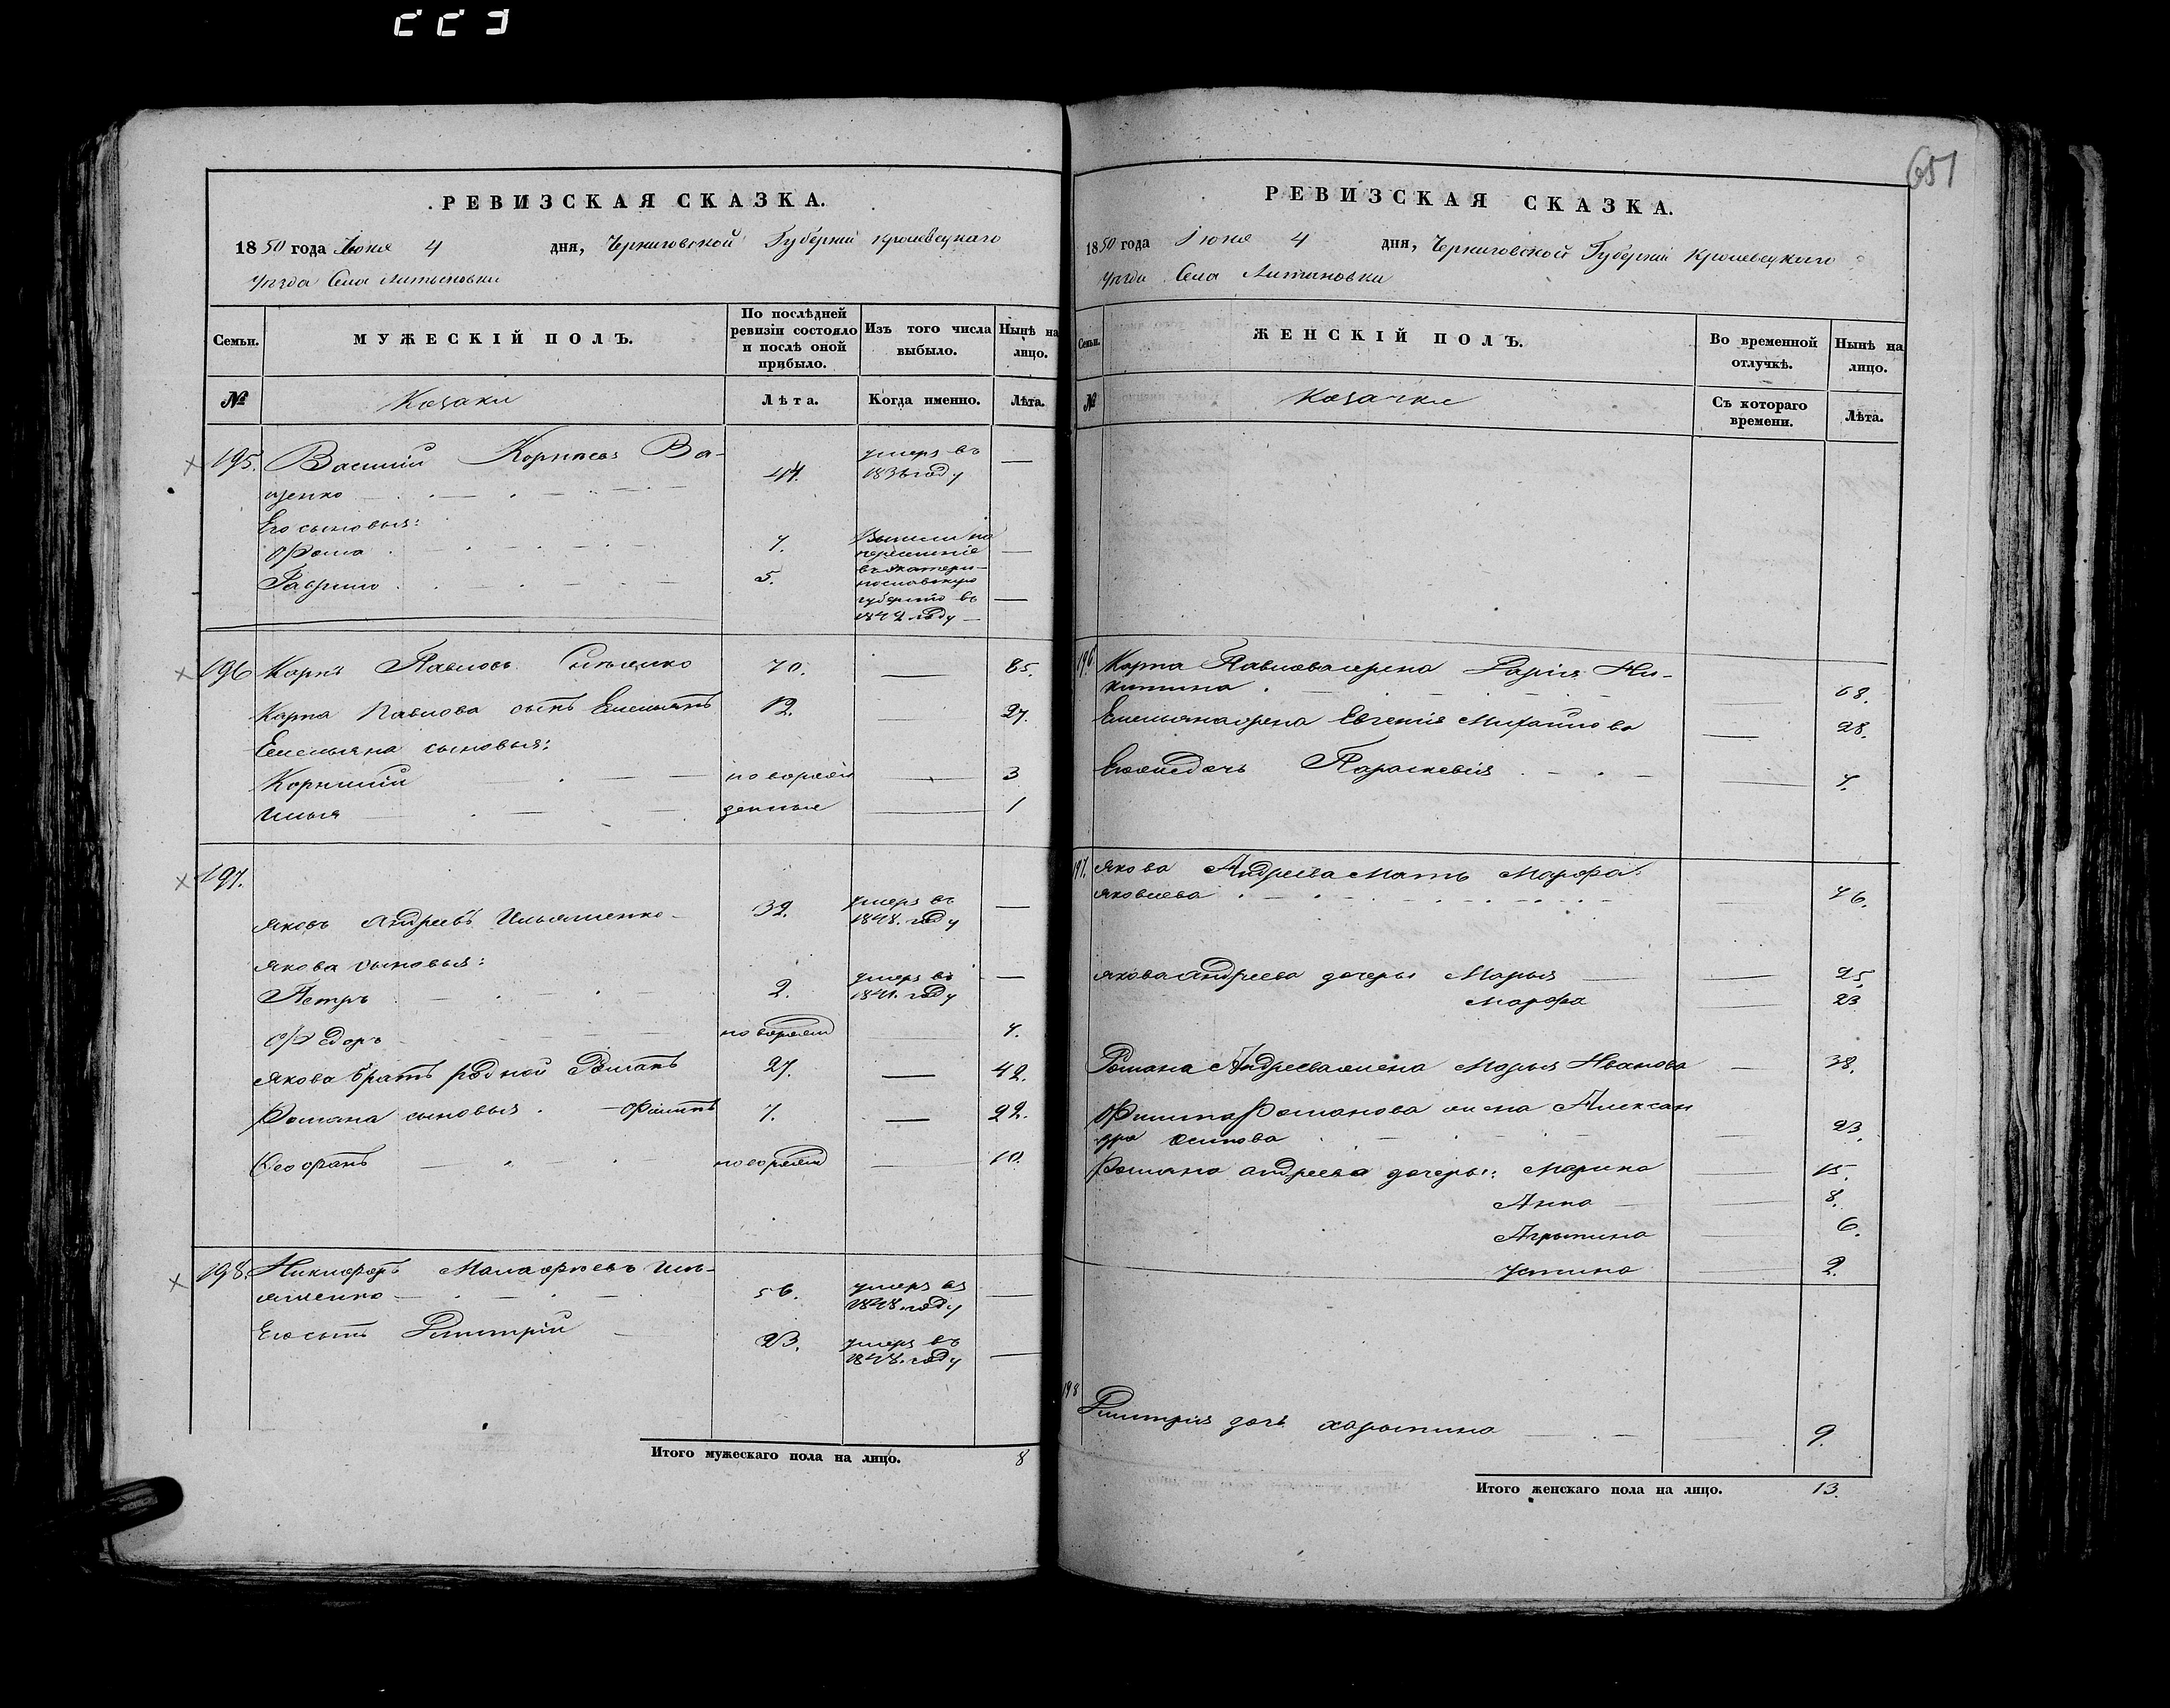 651
РЕВИЗСКАЯ СКАЗКА.
1850 года Июня 4 дня, Черниговской Губерніи Кролевецкаго
Уѣзда Села Литыновки
Семьи.
МУЖЕСКІЙ ПОЛЪ.
По послѣдней ревизіи состояло и послѣ оной прибыло.
Изъ того числа выбыло.
Нынѣ на лицо.
№
Козаки
Лѣта.
Когда именно.
Лѣта.
195. Василій Корнѣевъ Ва-
щенко 44. умеръ въ году —
Его сыновья:
Фома 7. —
Гаврило 5. —
Вышли на
переселеніе
въ Екатери-
нославскую
губернію въ
году
196 Карпъ Павловъ 70. — 85.
Карпа Павлова сынъ Емельянъ 12. — 27.
Емельяна сыновья:
Корнилій новорож — 3
Илья денные — 1
197.
Яковъ Андреевъ Ильяшенко 32. умеръ въ 1848. году —
Якова сыновья:
Петръ 2. умеръ въ 1841. году —
Федоръ новорожд — 7.
Якова братъ родной Романъ 27. — 42.
Романа сыновья. Филипъ 7. — 22.
Феофанъ новорожд — 10.
198. Никифоръ Иль-
яшенко 56. умеръ въ 1848. году —
Его сынъ Дмитрій 23. умеръ въ 1848. году —
Итого мужескаго пола на лицо. 8
РЕВИЗСКАЯ СКАЗКА.
1850 года Июня 4 дня, Черниговской Губерніи Кролевецкаго
Уѣзда Села Литыновки
Семьи.
ЖЕНСКІЙ ПОЛЪ.
Во временной отлучкѣ.
Нынѣ на лицо.
№
Козачки
Съ котораго времени.
Лѣта.
196 Карпа Павлова жена Дарія Ни-
китина — 68.
Емельяна жена Евгенія Михайлова — 28.
Емели дочь Параскевія — 7.
197. Якова Андреева мать Марфа
Яковлева — 76.
Якова Андреева дочеры Марья — 25.
Марфа — 23
Романа Андреева жена Марья Иванова — 38.
Филипа Романова жена Алексан
дра Осипова — 23.
Романа Андреева дочеры: Марина — 15.
Анна — 8.
Агрыпина — 6.
Устина — 2.
198
Дмитрія дочь Харытина — 9.
Итого женскаго пола на лицо. 13.